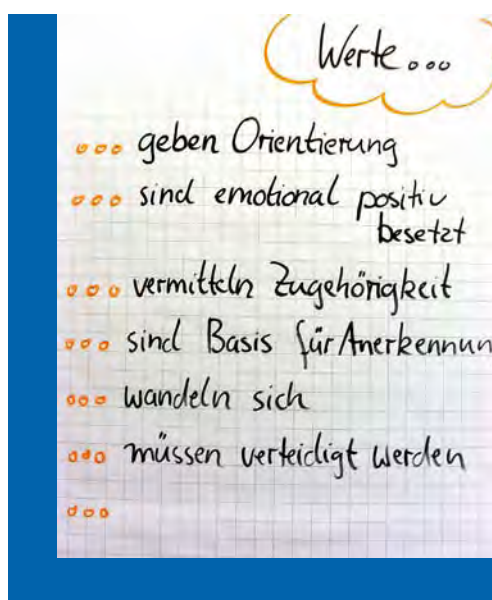 Werte...
... geben Orientierung
... sind emotional positiv
besetzt
... vermitteln Zugehörigkeit
... sind Basis für Anerkennun
... wandeln sich
... müssen verteidigt werden
...